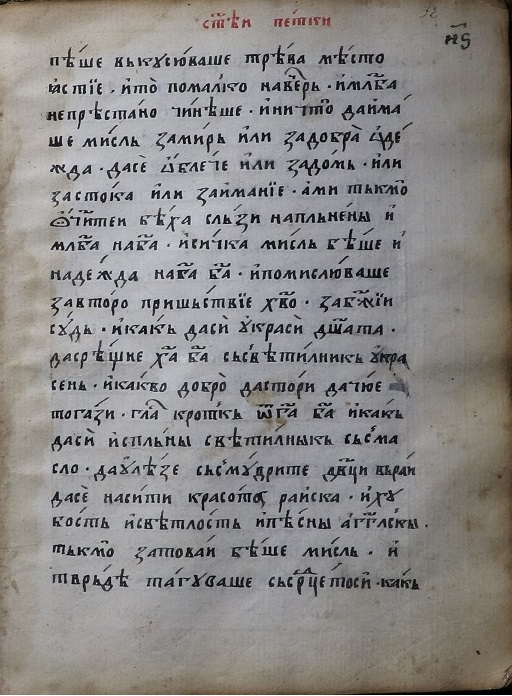 ст҃ѣи петки
н҃ѕ
пѣше вькусюваше трѣва мѣсто
ꙗстїе · и҆то̀ помалко навечерь · и҆мл҃ба
непрѣстано чинѣше · и҆ничто̀ даима
ше мисль замирь или задобра̀ ѡ҆де
жда · дасѐ ѡ҆блече или задомь · или
застока или заиманїе · ами тькмо
ѡ҆чите и бѣха сльзи напльнены и҆
мл҃ба на б҃а · и҆сичка мисль бѣше и҆
надежда на б҃а · и҆помислюваше
завторо пришьствїе хв҃о · заб҃жїи
судь · и҆какь дасѝ украсѝ дш҃ата ·
дасрѣщне х҃а б҃а сьсвѣтилникь укра
сень · и҆какво добро̀ дастори дачюе
тогази · гла кроткь ѿ г҃а б҃а и҆какь
дасѝ исплъны свѣтилныкь сьсма
сло · даулѣзе сьсмудрите дв҃ци вьраи
дасѐ насити красота раиска · и҆ху
бость и҆свѣтлость и҆пѣсны аг҃глскы ·
тькмо затоваи бѣше мисль · и҆
тврьдѣ тагуваше сьср҃цетоси · какь